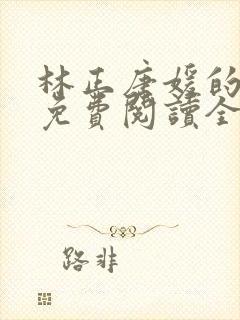 林正唐媛的
免費閱讀全
路非